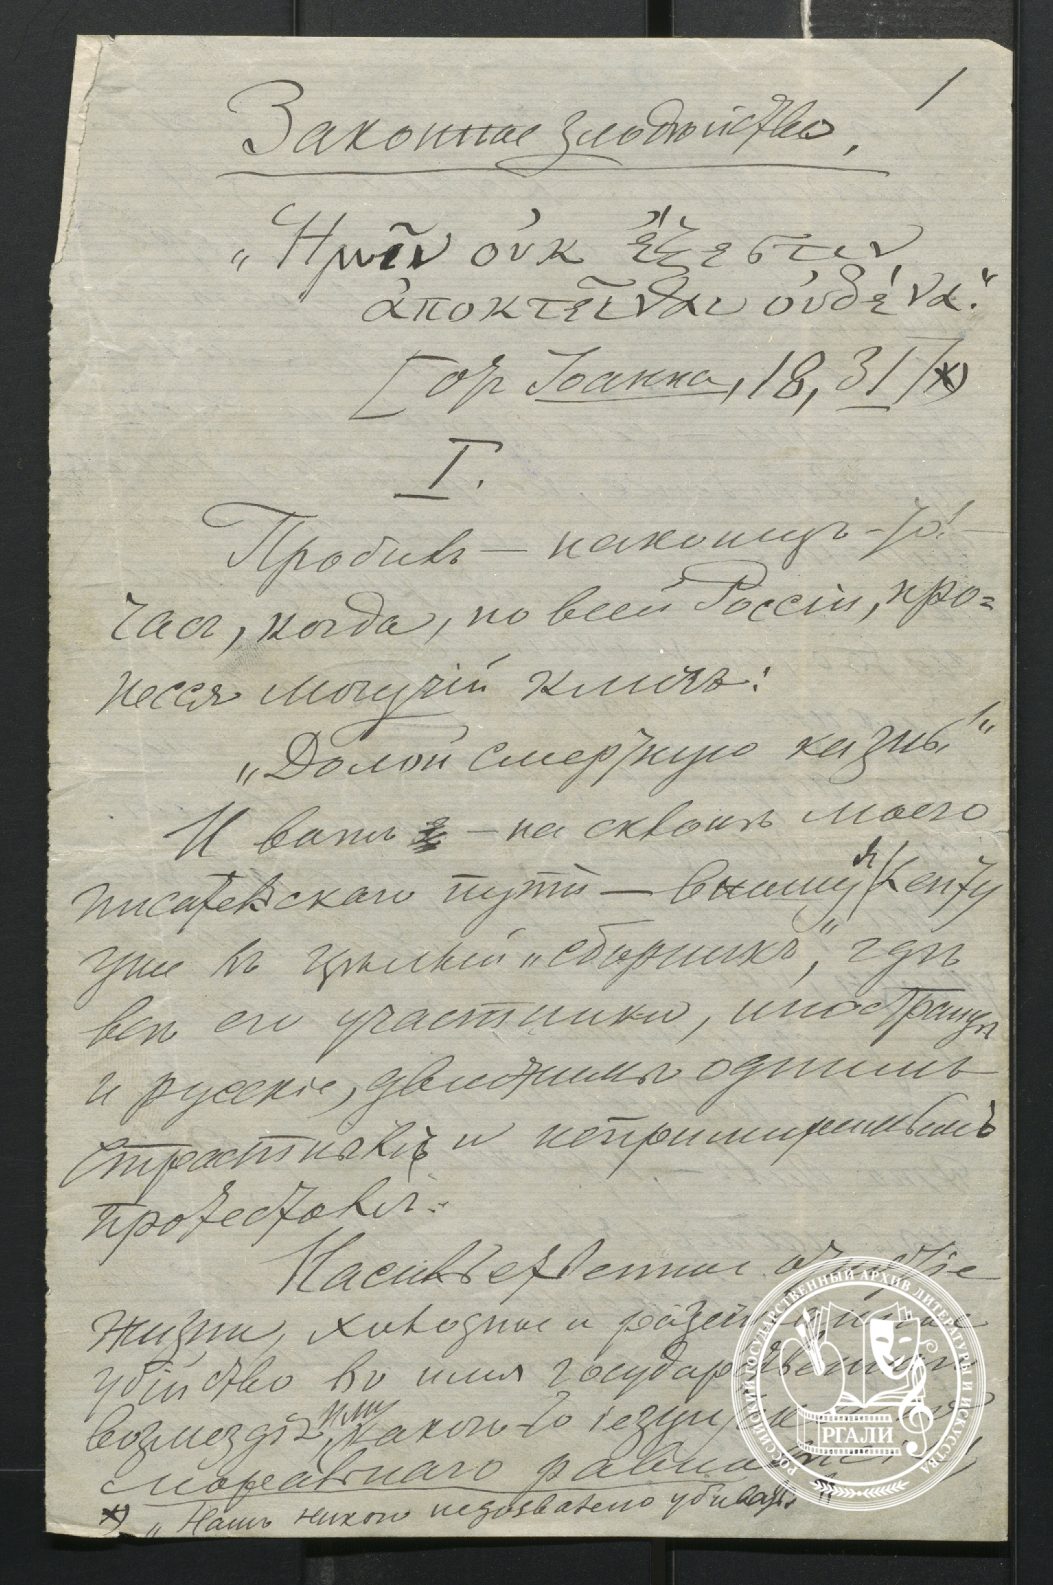 1
Законное злодѣйство.
„Ἡμῖν οὐκ ἔξεστιν
ἀποκτεῖναι οὐδένα!“
[от Іоанна, 18, 31] *)
I.
Пробилъ — наконецъ-то! —
часъ, когда, по всей Россіи, про=
несся могучій кличъ:
„Долой смертную казнь!“
И вотъ — на склонѣ моего
писательскаго пути — вношу я лепту
уже въ цѣлый „сборникъ“, гдѣ
всѣ его участники, иностранцы
и русскіе, движимы однимъ
страстнымъ и непримиримымъ
протестомъ.
Насильственное отнятіе
жизни, холодное и
убійство во имя государственнаго
возмездія, или какого-то
моральнаго
*) „Намъ никого не дозволено убивать.“
РОССИЙСКИЙ ГОСУДАРСТВЕННЫЙ АРХИВ ЛИТЕРАТУРЫ И ИСКУССТВА
РГАЛИ